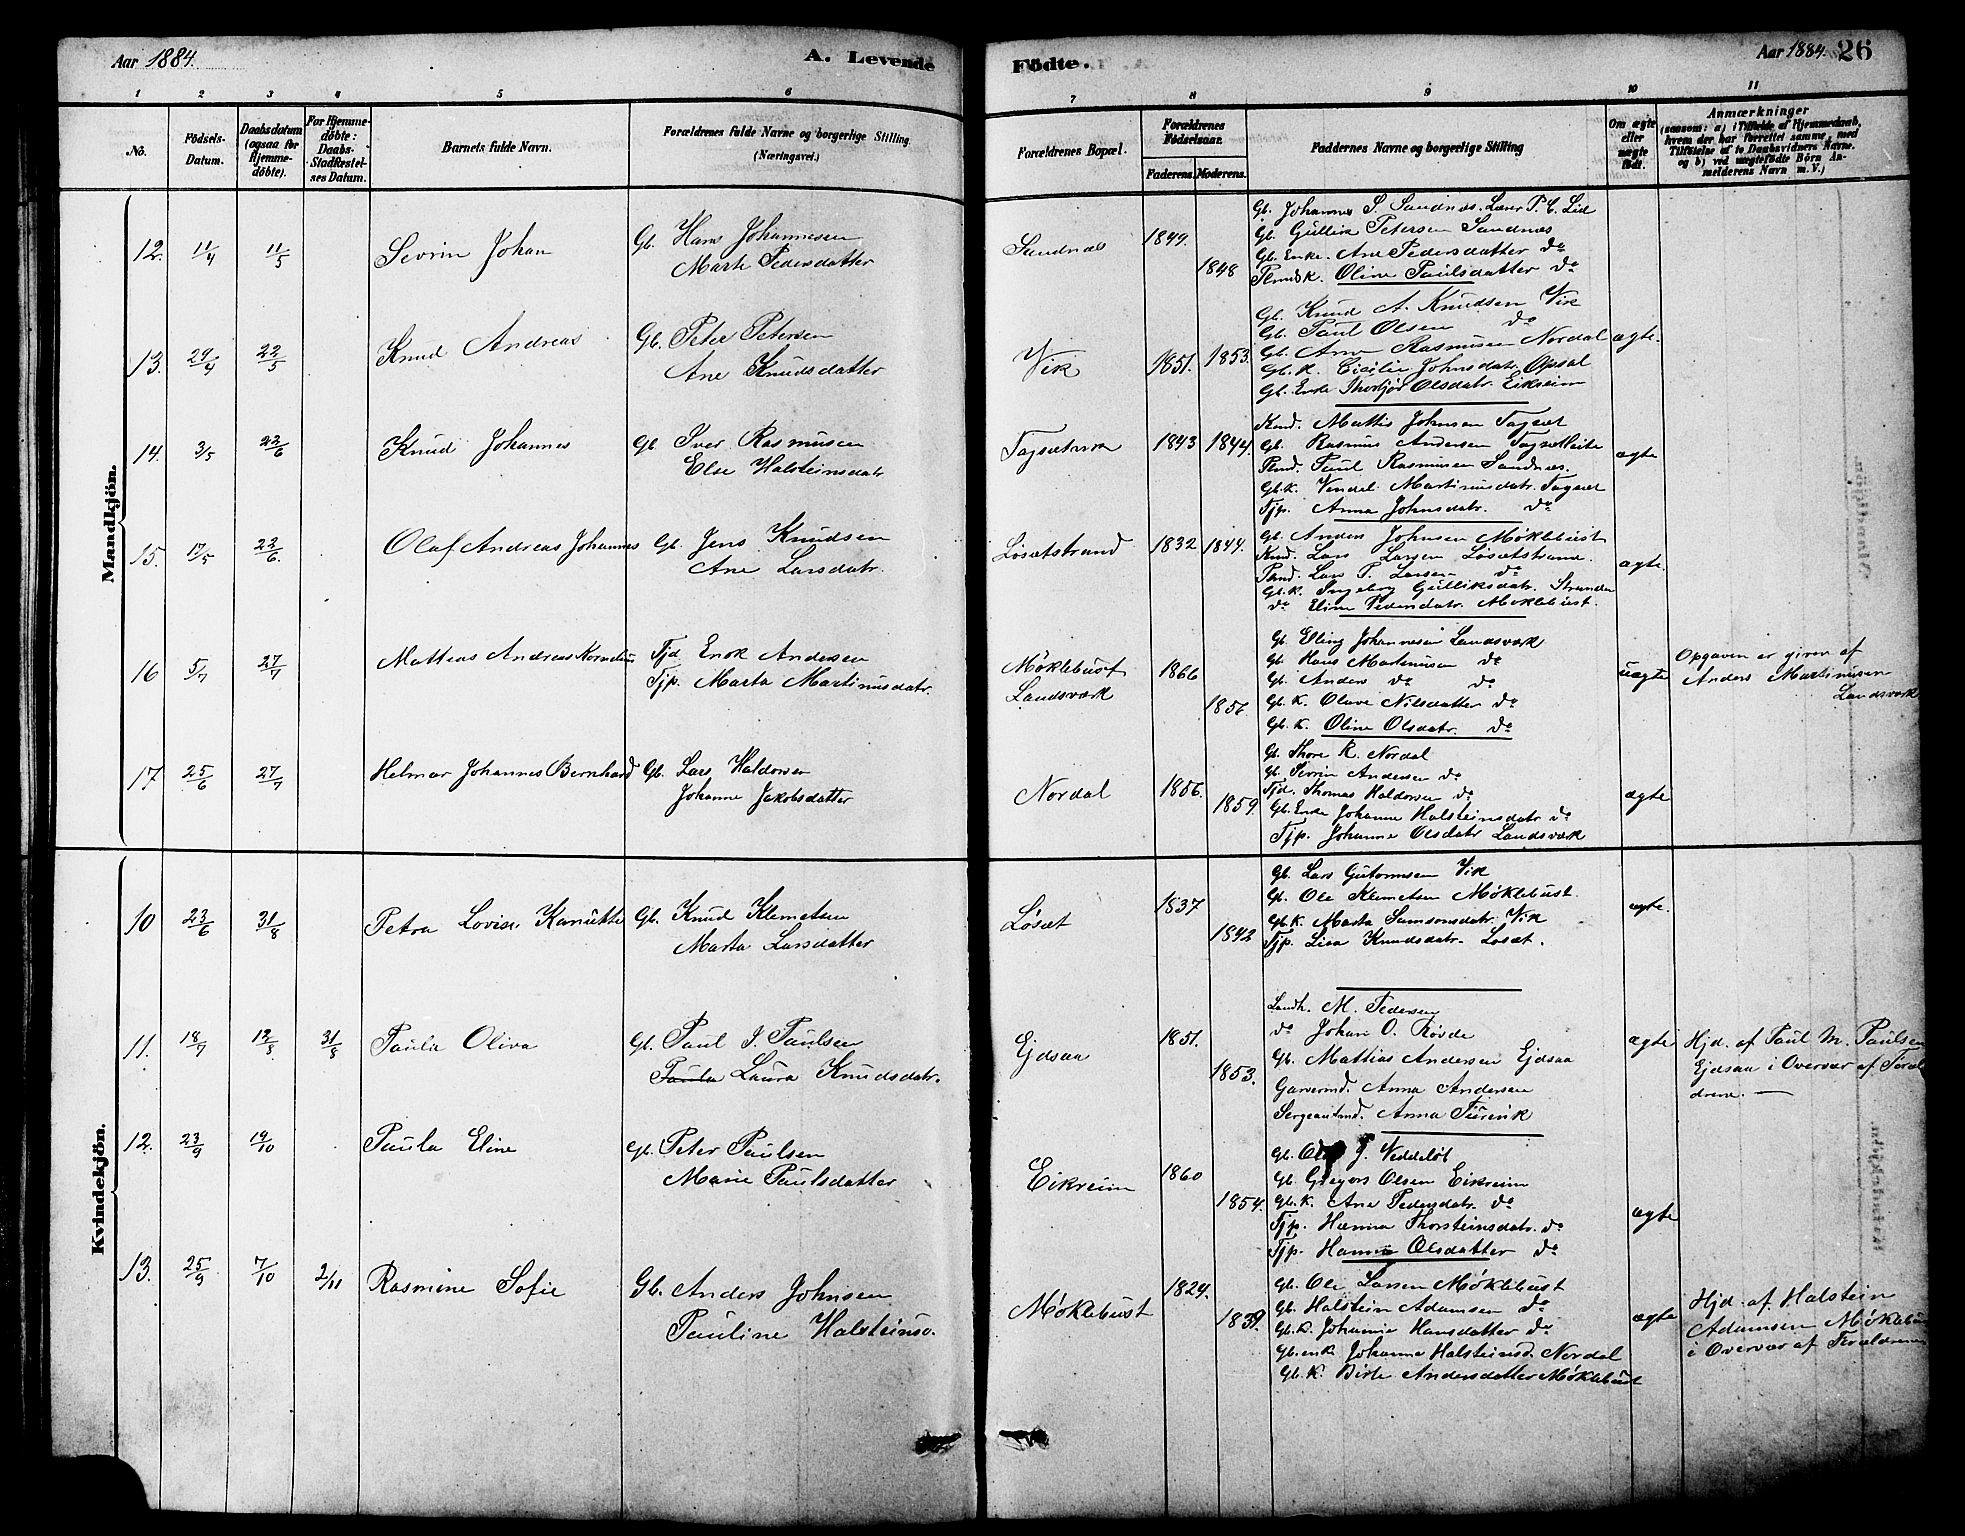 Aar 1884.
A. Levende
Födte.
Aar 1884.
26
1 2 3 4 5 6 7 8 9 10 11
No.
Födsels-Datum.
Daabsdatum (ogsaa for Hjemme-döbte).
For Hjemme-döbte: Daabs-Stadfæstelses Datum.
Barnets fulde Navn.
Forældrenes fulde Navne og borgerlige Stilling (Næringsvei.)
Forældrenes Bopæl.
Forældrenes Födselsaar.
Faderens. Moderens.
Faddernes Navne og borgerlige Stilling
Om ægte eller uægte födt.
Anmærkninger
(saasom: a) i Tilfælde af Hjemmedaab, hvem der har forrettet samme, med Tilföielse af to Daabsvidners Navne. og b) ved uægtefödte Börn Anmelderens Navn m. V.)
Mandkjön.
12. 11/4 11/5 Sevrin Johan
Gb. Hans Johannesen
Marte Pedersdatter
Sandnæs 1849. 1848
Gb. Johannes S. Sandnæs. Lærer P. C. Lid
Gb. Gullik Petersen Sandnæs
Gb. Enke. Ane Pedersdatter do
Oline Paulsdatter do
13. 29/4 22/5 Knud Andreas
Gb. Peter Petersen
Ane Knudsdatter
Vik 1851. 1853. ægte.
Gb. Knud A. Knudsen Vik
Gb. Paul Olsen do
Gb. Arne Rasmusen Nordal
Gb. K. Cicilie Johnsdatr. Opsal
Gb. Enke Thorbjør Olsdatr. Eikreim
14. 3/5 22/6 Knud Johannes
Gb Iver Rasmusen
Else Halsteinsdatr.
1843 1844. ægte
Mattis Johnsen Tagsæt
Gb. Rasmus Andersen
Paul Rasmusen Sandnæs.
Gb. K. Martinusdatr. Tagsæt
Tjp. Anna Johnsdatr. do
15. 17/5 22/6. Olaf Andreas Johannes
Gb. Jens Knudsen
Ane Larsdatr.
Løsætstrand 1832 1844. ægte.
Gb. Anders Johnsen Møklebust
Lars Larsen Løsætstrand.
Lars P. Larsen do
Gb. K. Ingeborg Gulliksdatr. Stranden
do Eline Pedersdatr. Møklebust.
16 5/7 27/7 Mattias Andreas Kornelius
Tjd Enok Andersen
Tjp. Marta Martinusdatr.
Møklebust
Landsværk 1866 1856. uægte
Gb. Elling Johannesen Landsværk
Gb. Hans Martinusen do
Gb. Anders do do
Gb. K. Olave Nilsdatter do
Gb. K. Oline Olsdatr. do
Opgaven er given af
Anders Martinusen
Landsværk
17 25/6 27/7 Helmar Johannes Bernhard
Gb. Lars Haldorsen
Johanne Jakobsdatter
Nordal 1856. 1859. ægte
Gb. Thore R. Nordal
Gb. Sevrin Andersen do
Tjd. Thomas Haldorsen do
Gb. Enke Johanne Halsteinsdatr do
Tjp. Johanne Olsdatr Landsværk
Kvindekjön.
10 23/6 31/8 Petra Lovise Kanutte
Gb. Knud Klemetsen
Marta Larsdatter
Løsæt 1837 1842 ægte.
Gb. Lars Gutormsen Vik
Gb. Ole Klemetsen Møklebust.
Gb. K. Marta Samsonsdatr. Vik
Tjp. Lisa Knudsdatr. Løsæt.
11. 18/7 12/8 31/8 Paula Oliva
Gb. Paul J. Paulsen
Paula Laura Knudsdatr.
Ejdsaa 1851. 1853. ægte
Landh. M. Pedersen
do Johan O. Røvde
Gb. Mattias Andersen Ejdsaa
Garvermd. Anna Andersen
Sergeantmd. Anna
Hjd. af Paul M. Paulsen
Ejdsaa i Overvær af Foræl-
drene.
12. 23/9 19/10 Paula Eline
Gb. Peter Paulsen
Marie Paulsdatter
Eikreim 1860 1854. ægte
Gb. J.
Gb. Gregors Olsen Eikreim
Gb. K. Ane Pedersdatr. do
Tjp. Hanna Thorsteinsdatr. do
Tjp. Hanna Olsdatter do
13. 25/9 7/10 2/11 Rasmine Sofie
Gb. Anders Johnsen
Pauline Halsteinsd.
Møklebust 1824. 1839. ægte
Gb. Ole Larsen Møklebust
Gb. Halstein Adamsen do
Gb. K. Johanne Hansdatter do
Gb. enke Johanna Halsteinsd. Nordal
Gb. K. Birte Andersdatter Møklebust
Hjd. af Halstein
Adamsen Møklebust
i Overvær af Forældrene